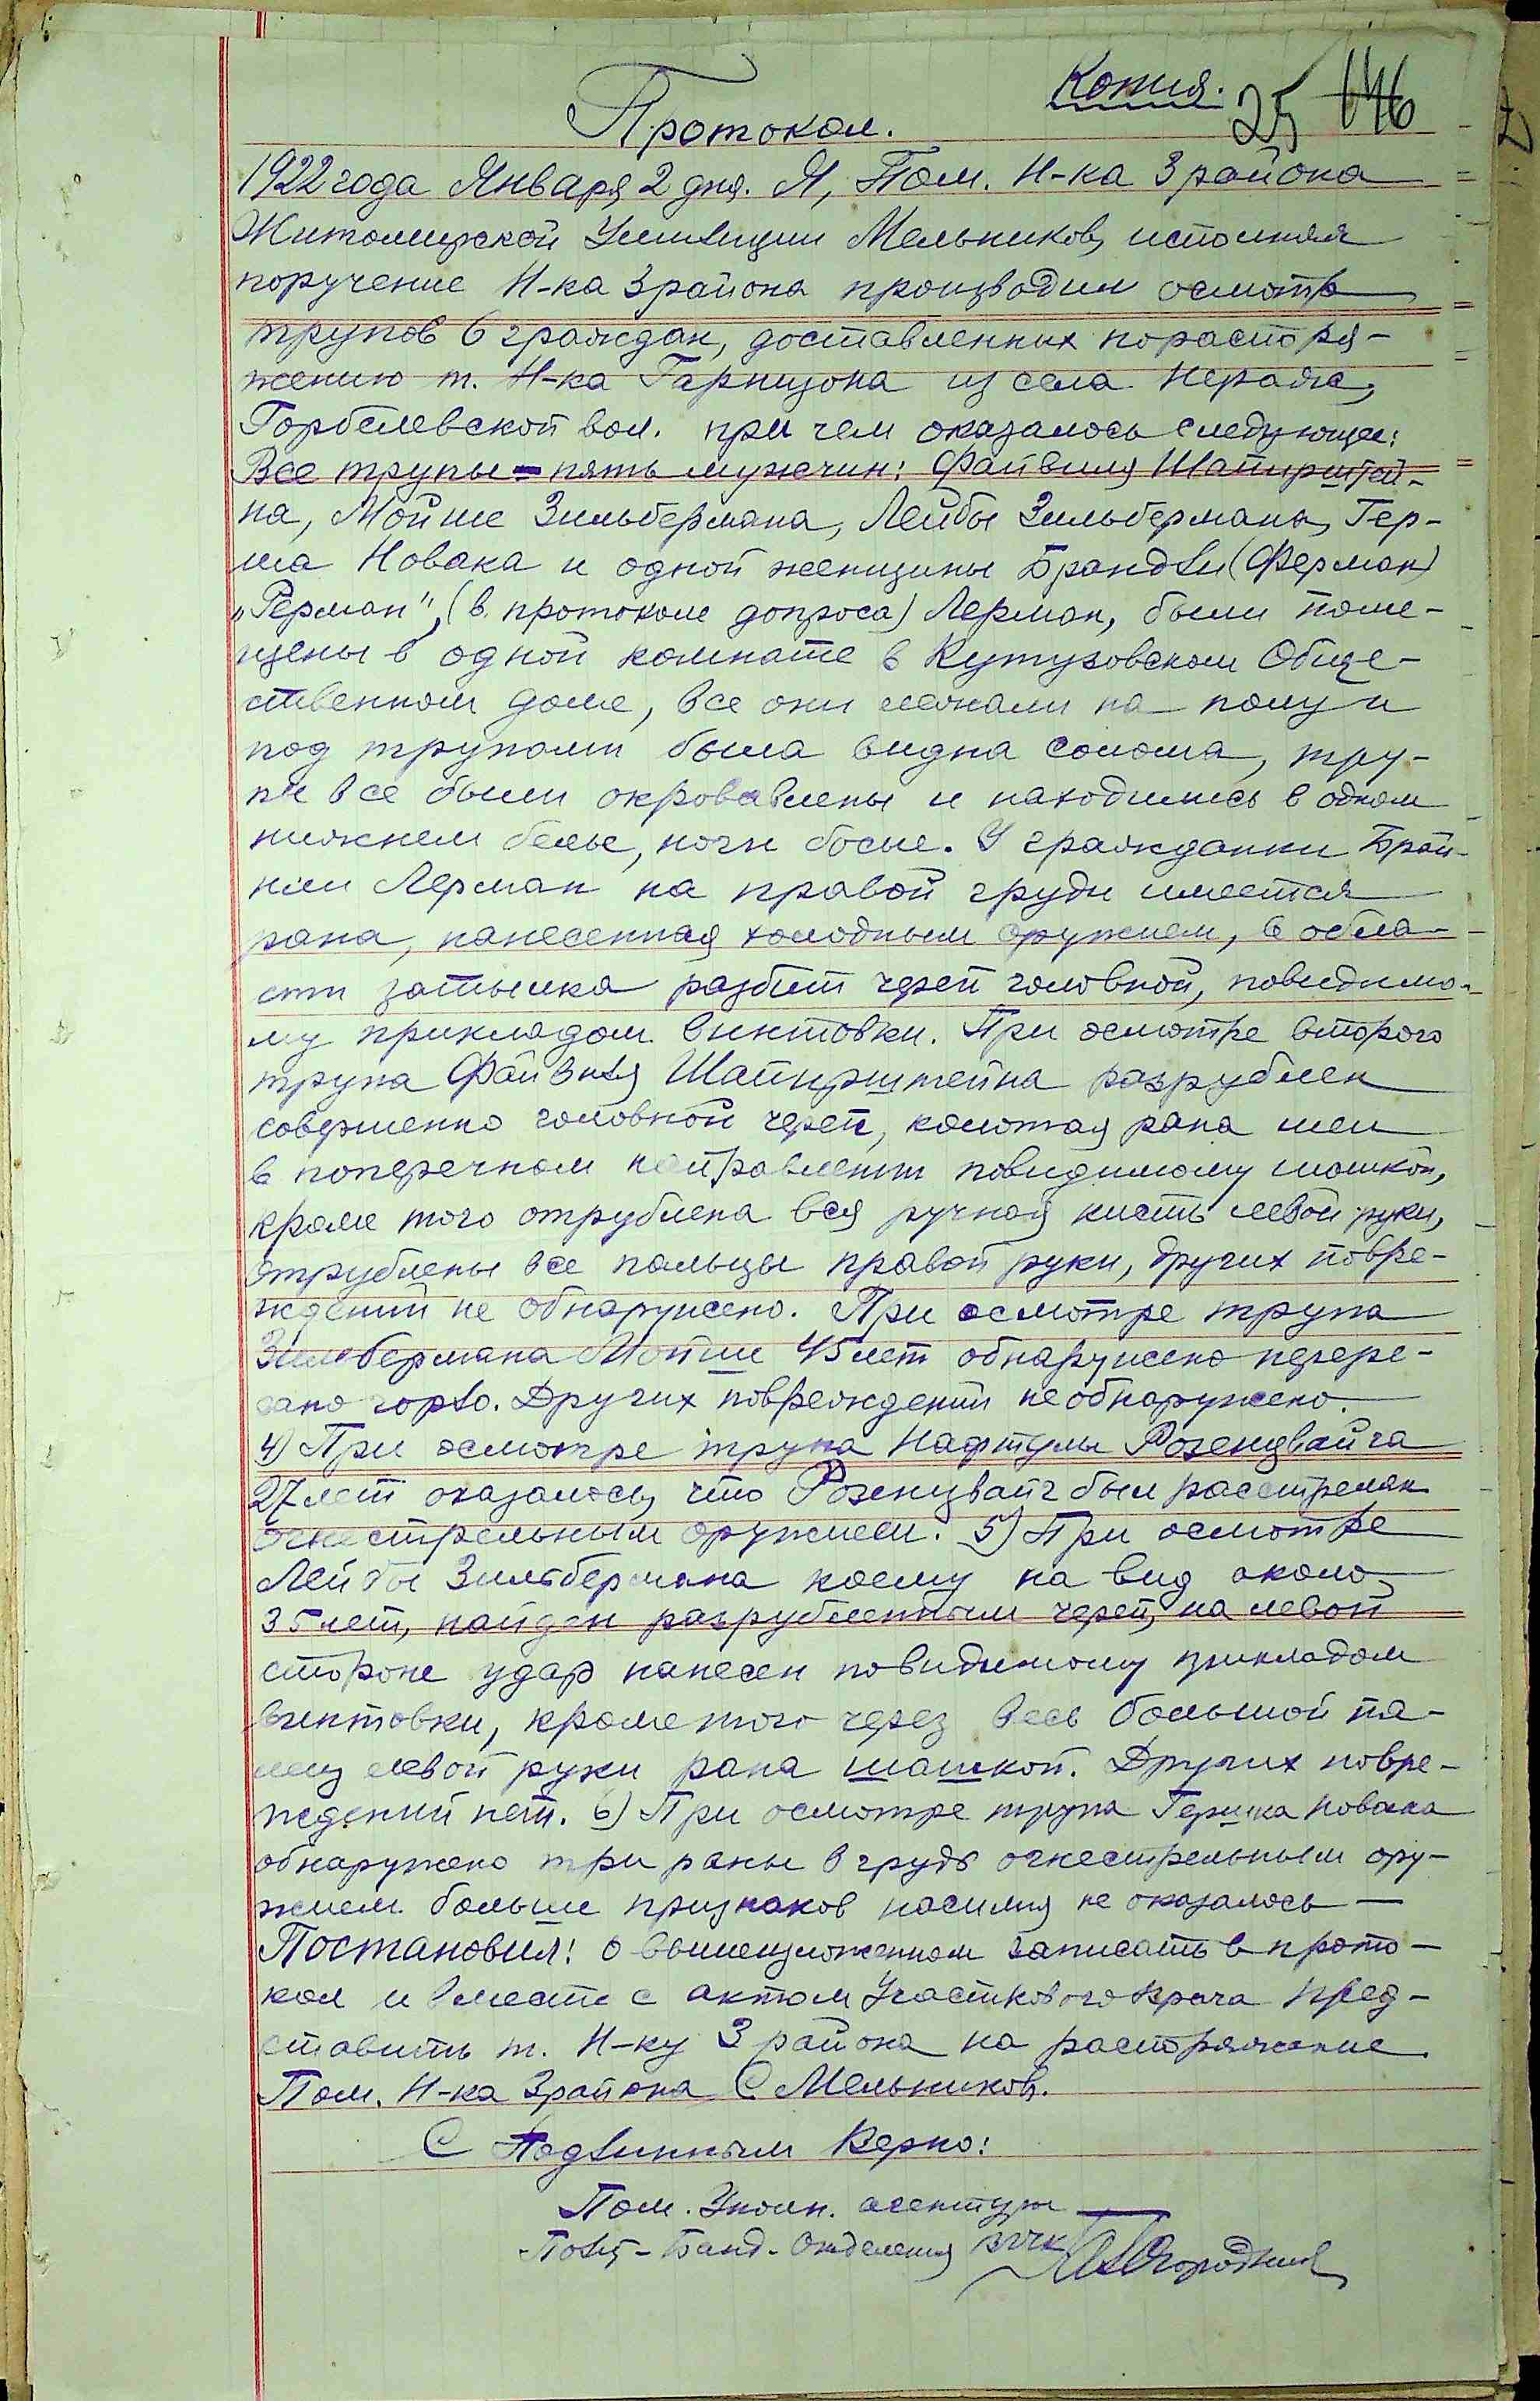 Копия.
25 146
Протокол.
1922 года Января 2 дня. Я, Пом. Н-ка 3 района
Житомирской Умилиции Мельников, исполняя
поручение Н-ка 3 района производил осмотр
трупов 6 граждан, доставленных по распоря-
жению т. Н-ка Гарнизона из села
Горбулевской вол. при чем оказалось следующее:
Все трупы - пять мужчин: Файвиля Шапирштей-
на, Мойше Зильбермана, Лейбы Зильбермана, Гер-
ша Новака и одной женщины (Ферман)
"Ферман", (в протоколе допроса) Лерман, были поме-
щены в одной комнате в Кутузовском Обще-
ственном доме, все они лежали на полу и
под трупами была видна солома, тру-
пы все были окровавлены и находились в одном
нижнем белье, ноги босые. У гражданки Брай-
ны Лерман на правой груди имеется
рана, нанесенная холодным оружием, в обла-
сти затылка разбит череп головной, повидимо-
му прикладом винтовки. При осмотре второго
трупа Файвиля Шапирштейна разрублен
совершенно головной череп, колотая рана шеи
в поперечном направлении повидимому шашкой,
кроме того отрублена вся ручная кисть левой руки,
отрублены все пальцы правой руки, других повре-
ждений не обнаружено. При осмотре трупа
Зильбермана Мойши 45 лет обнаружено перере-
зано горло. Других повреждений не обнаружено.
4) При осмотре трупа Нафтулы Розенцвайга
27 лет оказалось, что Розенцвайг был расстрелян
огнестрельным оружием. 5) При осмотре
Лейбы Зильбермана коему на вид около
35 лет, найден разрубленным череп, на левой
стороне удар нанесен повидимому прикладом
винтовки, кроме того через весь большой па-
лец левой руки рана шашкой. Других повре-
ждений нет. 6) При осмотре трупа Гершка Новака
обнаружено три раны в грудь огнестрельным ору-
жием больше признаков насилия не оказалось —
Постановил: о вышеизложенном записать в прото-
кол и вместе с актом Участкового Врача пред-
ставить т. Н-ку 3 района на распоряжение.
Пом. Н-ка 3 района С Мельников.
С Подлинным Верно:
Пом. Уполн. агентуры
Полит-Банд. Отделения ВГЧК Огородник